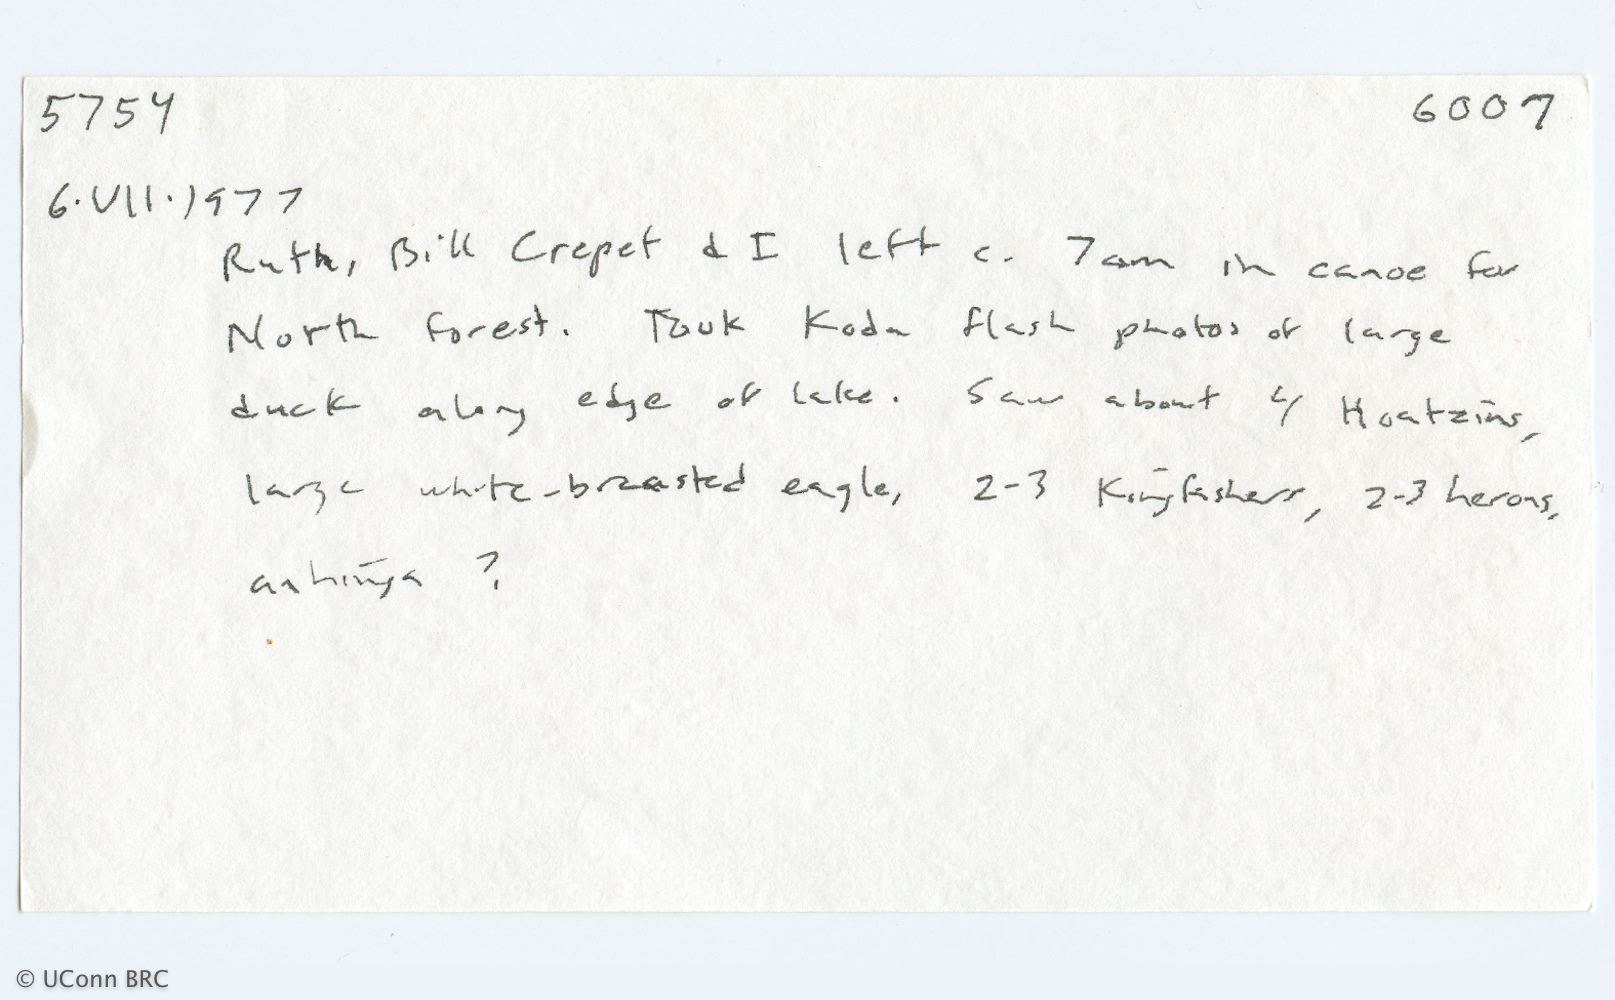 5754 6007
6.VII.1977
Ruth, Bill Crepet & I left c. 7am in canoe for
North Forest. Took Koda flash photos of large
duck along edge of lake. Saw about 4 Hoatzins,
large white-breasted eagle, 2-3 Kingfishers, 2-3 herons,
anhinga ?
© UConn BRC